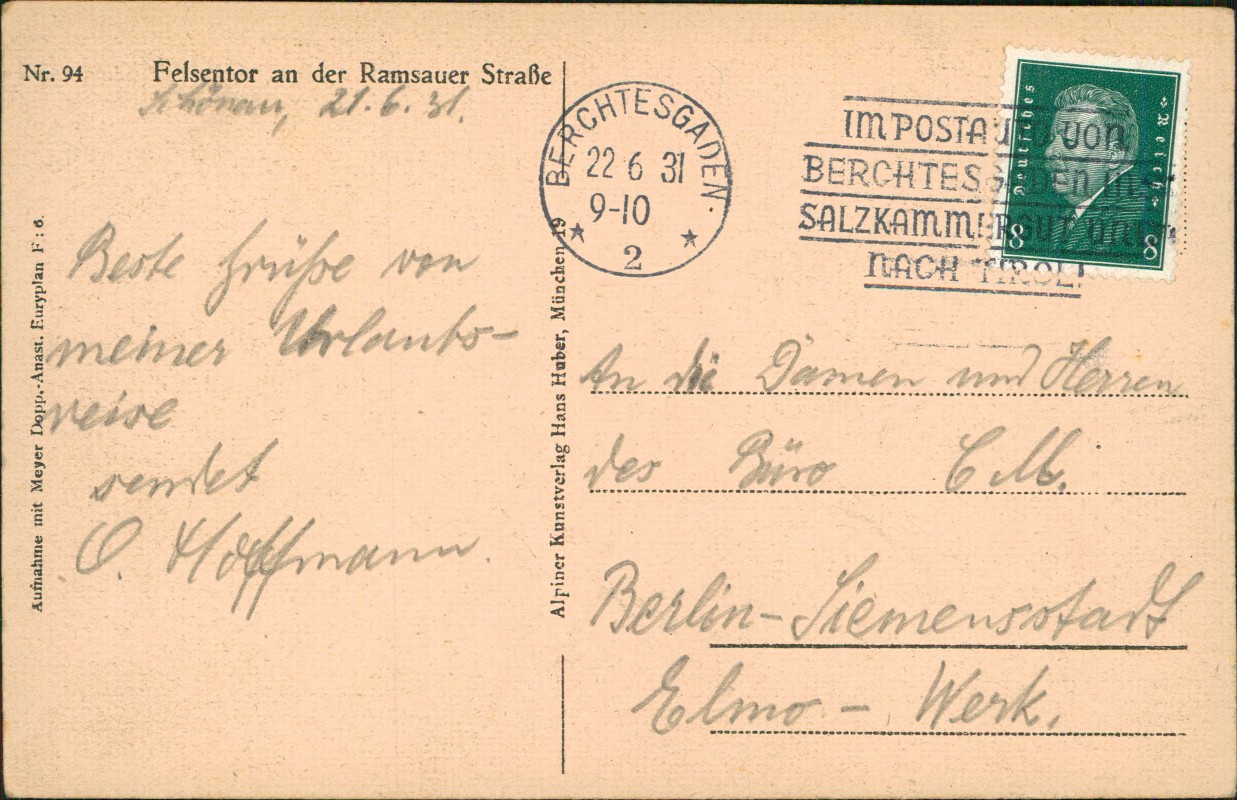 Nr. 94 Felsentor an der Ramsauer Straße
Schönau, 21.6.31.
Beste Grüße von
meiner Urlaubs-
reise
sendet
O. Hoffmann.
Aufnahme mit Meyer Dopp.-Anast. Euryplan F : 6.
Alpiner Kunstverlag Hans Huber, München 19
BERCHTESGADEN
22 6 31
9-10
2
IM POSTAUTO VON
BERCHTESGADEN INS
SALZKAMMERGUT UND
NACH TIROL!
Deutsches Reich
8 8
An die Damen und Herren
des Büro C M.
Berlin-Siemensstadt
Elmo - Werk.